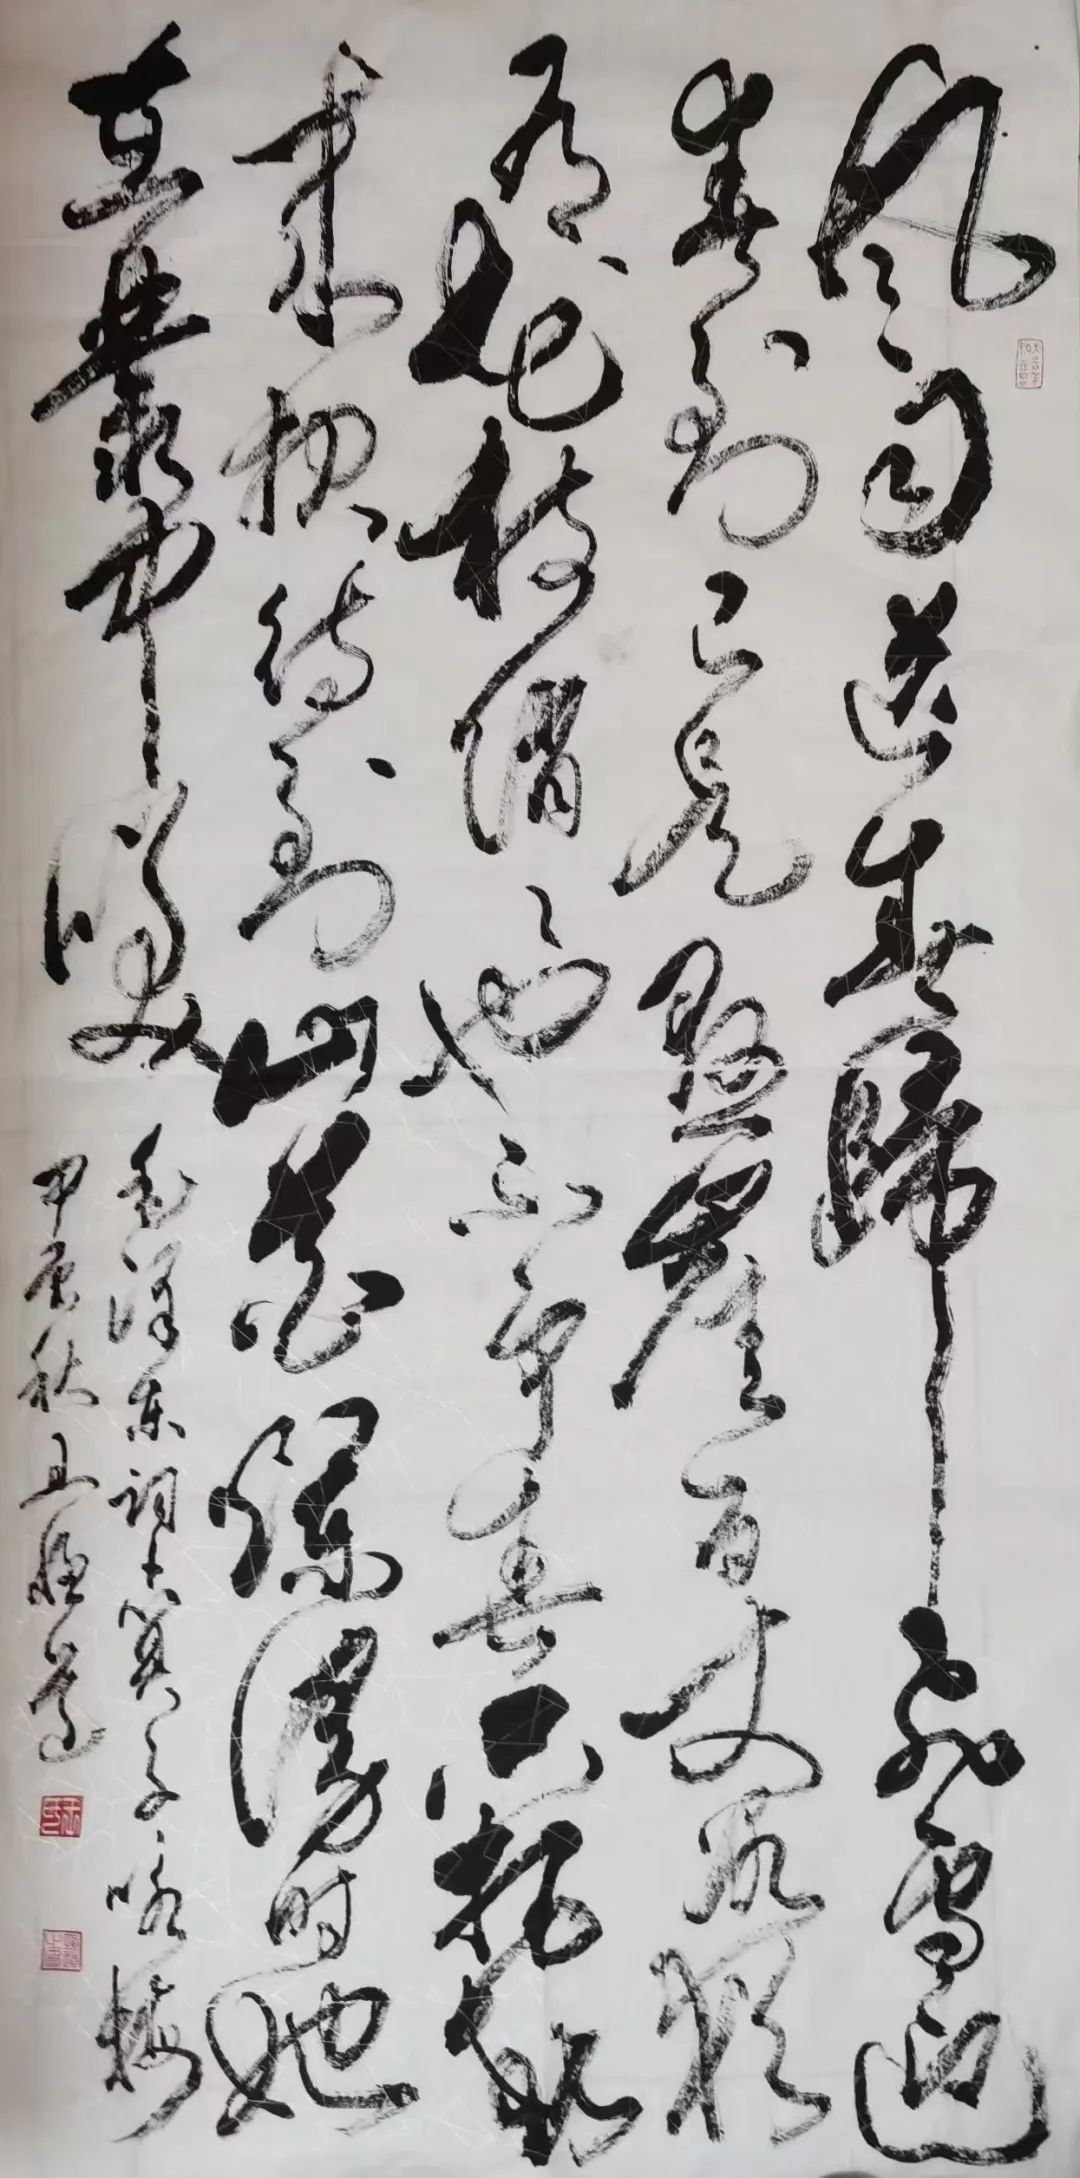 风雨送春歸飞雪迎
春到已是悬崖百丈冰犹
有花枝俏〻也不争春只把春
来报待到山花爛漫时她
在叢中咲
毛泽东词卜算子咏梅
甲辰秋